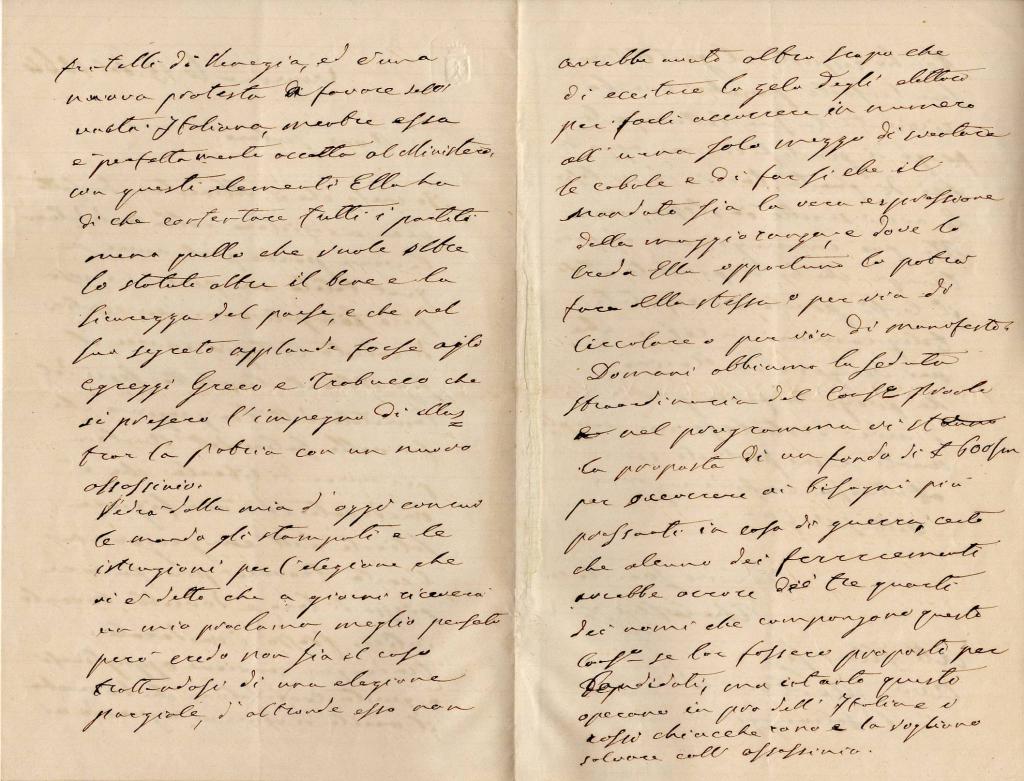 fratelli di Venezia, ed è una
nuova protesta a favore dell'
unità Italiana, mentre essa
è perfettamente accetta al Ministero,
con questi elementi Ella ha
di che contentare tutti i partiti
meno quello che vuole oltre
lo statuto oltre il bene e la
sicurezza del paese, e che nel
suo segreto applaude forse agli
egreggi Greco e Trabucco che
si presero l'impegno di illus
trar la patria con un nuovo
assassinio.
Vedrà dalla mia d'oggi con cui
le mando gli stampati e le
istruzioni per l'elezione che
vi è detto che a giorni riceverà
un mio proclama, meglio pensato
però credo non sia il caso
trattandosi di una elezione
parziale, d'altronde esso non
avrebbe avuto altro scopo che
di eccitare lo zelo degli elettori
per farli accorrere in numero
all'urna solo mezzo di sventare
le cabale e di far sì che il
mandato sia la vera espressione
della maggioranza, e dove lo
creda Ella opportuno lo potrà
fare Ella stessa o per via di
Circolare o per via di manifesto.
Domani abbiamo la seduta
straordinaria del Consº Provle
nel programma vi
la proposta di un fondo di £ 600
per soccorrere ai bisogni più
pressanti in caso di guerra, certo
che alcuno dei
avrebbe orrore dei tre quarti
dei nomi che compongono questo
Consº se lor fossero proposti per
Candidati, ma intanto questi
operano in pro dell'Italia e i
rossi chiaccherano e la vogliono
salvare coll'assassinio.